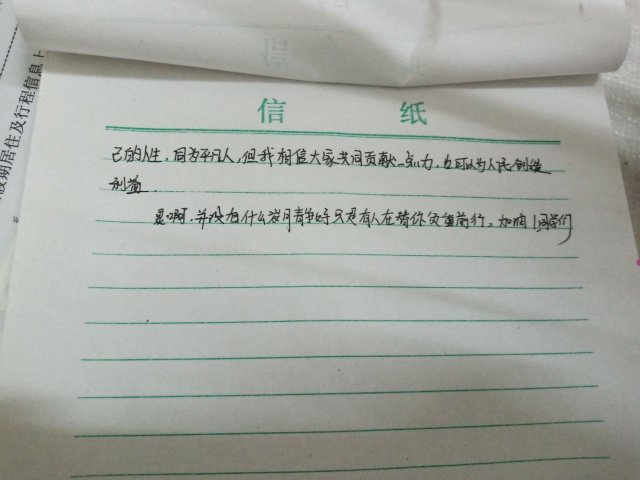 信 纸
己的人生，同为平凡人，但我相信大家共同贡献一点力，也可以为人民创造
利益．
是啊，并没有什么岁月静好只是有人在替你负重前行。加油！同学们
假期居住及行程信息上